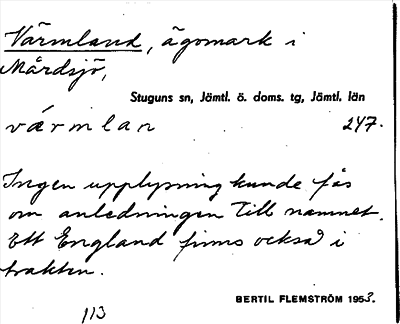 Värmland, ägomark i
Mårdsjö,
Stuguns sn, Jämtl. ö. doms. tg, Jämtl. län
värmlan 247.
Ingen upplysning kunde fås
om anledningen till namnet.
Ett England finns också i
trakten.
BERTIL FLEMSTRÖM 1953.
113